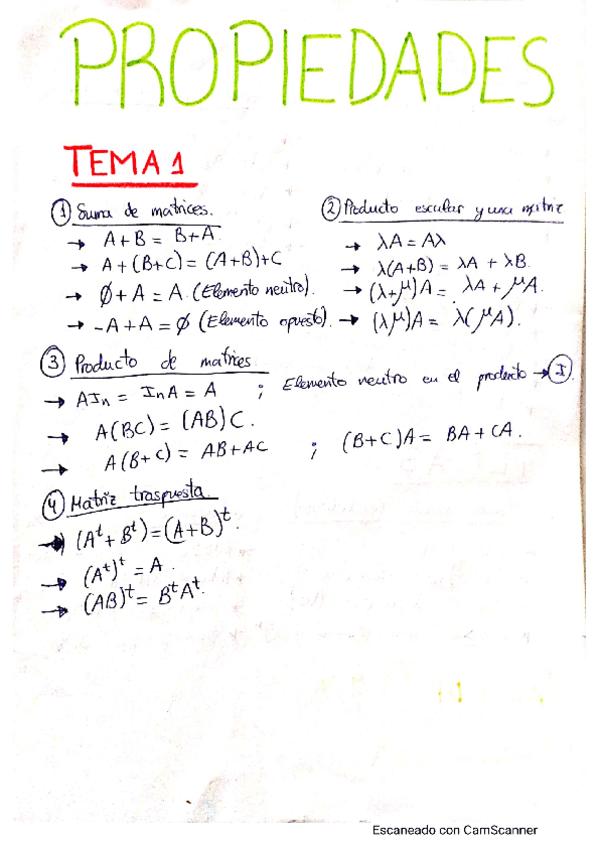 PROPIEDADES
TEMA 1
① Suma de matrices.
→ A+B = B+A
→ A+(B+C) = (A+B)+C
→ Ø+A = A (Elemento neutro).
→ -A+A = Ø (Elemento opuesto).
② Producto escalar y una matriz
→ λA = Aλ
→ λ(A+B) = λA + λB
→ (λ+μ)A = λA + μA.
→ (λμ)A = λ(μA).
③ Producto de matrices
→ AIn = InA = A ; Elemento neutro en el producto → I
→ A(BC) = (AB)C.
→ A(B+C) = AB+AC ; (B+C)A = BA+CA.
④ Matriz traspuesta
→ (Aᵗ+Bᵗ)=(A+B)ᵗ.
→ (Aᵗ)ᵗ = A.
→ (AB)ᵗ = BᵗAᵗ.
Escaneado con CamScanner